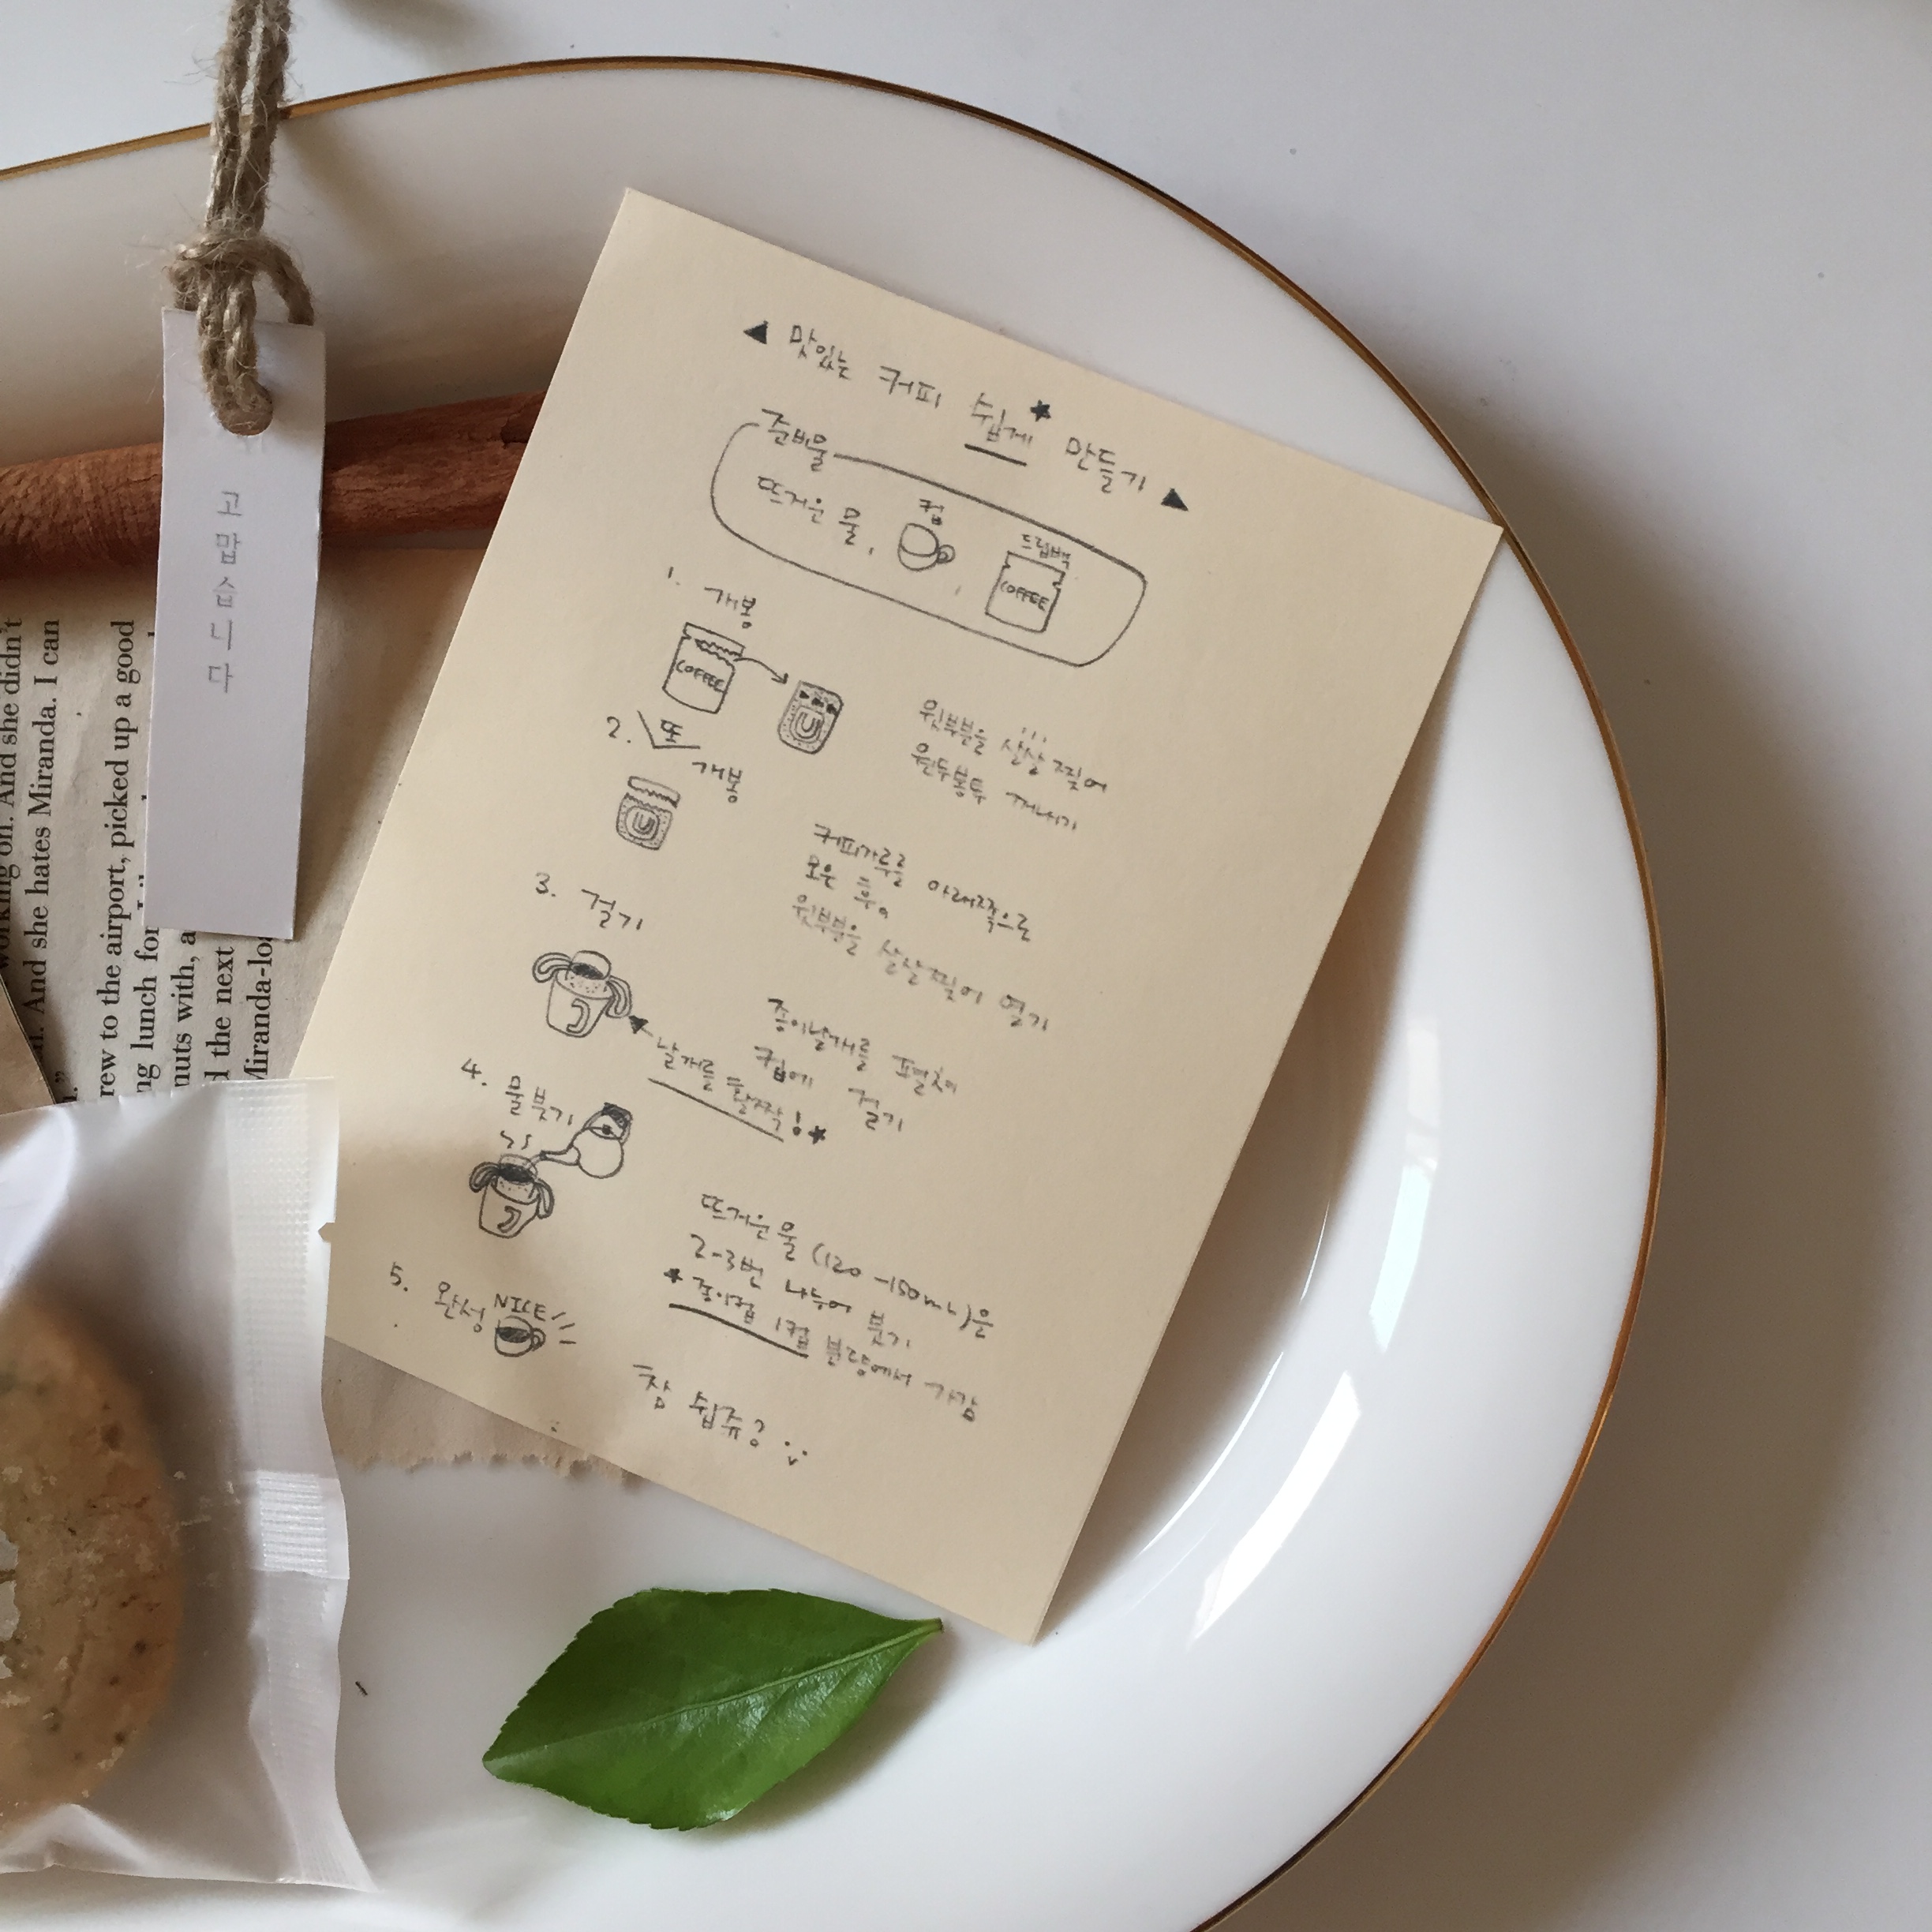 ▲ 맛있는 커피 쉽게 만들기 ▲
준비물
뜨거운 물, 컵, 드립백
COFFEE
1. 개봉
COFFEE
윗부분을 살살 찢어
원두봉투 꺼내기
2. 또 개봉
커피가루를 아래쪽으로
모은 후에
윗부분을 살살 찢어 열기
3. 걸기
종이날개를 펼쳐서
컵에 걸기
날개를 활짝! ★
4. 물붓기
뜨거운 물 (120-150mL)을
2-3번 나누어 붓기
* 종이컵 1컵 분량에서 가감
5. 완성 NICE
참 쉽쥬?
고맙습니다
working on. And she didn't
And she hates Miranda. I can
rew to the airport, picked up a good
ng lunch for
nuts with, a
d the next
Miranda-lo